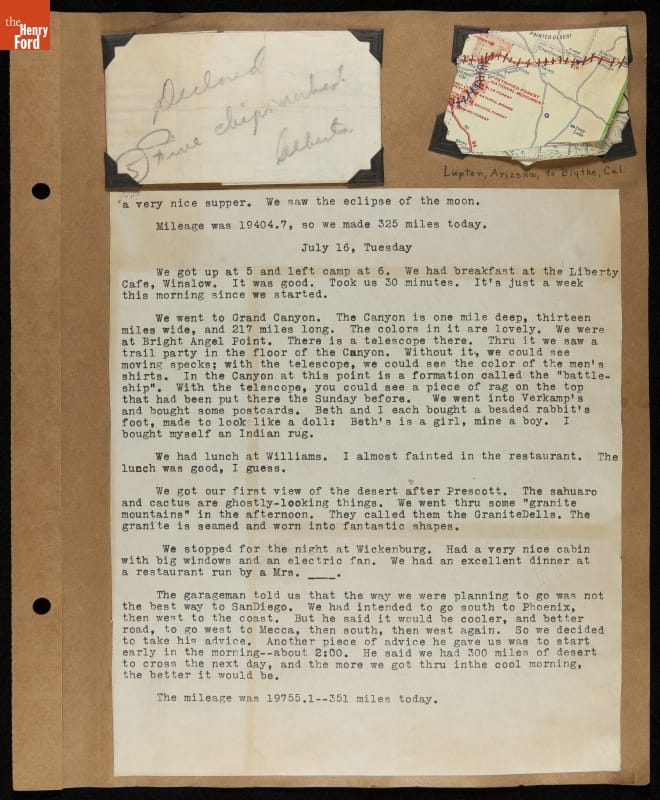 the
Henry
Ford
Declared
(5) Five chipmunked.
Albert.
PAINTED DESERT
PETRIFIED FOREST
NATIONAL MONUMENT
Lupton, Arizona, to Blythe, Cal.
a very nice supper.  We saw the eclipse of the moon.
Mileage was 19404.7, so we made 325 miles today.
July 16, Tuesday
We got up at 5 and left camp at 6.  We had breakfast at the Liberty
Cafe, Winslow.  It was good.  Took us 30 minutes.  It's just a week
this morning since we started.
We went to Grand Canyon.  The Canyon is one mile deep, thirteen
miles wide, and 217 miles long.  The colors in it are lovely.  We were
at Bright Angel Point.  There is a telescope there.  Thru it we saw a
trail party in the floor of the Canyon.  Without it, we could see
moving specks; with the telescope, we could see the color of the men's
shirts.  In the Canyon at this point is a formation called the "battle-
ship".  With the telescope, you could see a piece of rag on the top
that had been put there the Sunday before.  We went into Verkamp's
and bought some postcards.  Beth and I each bought a beaded rabbit's
foot, made to look like a doll:  Beth's is a girl, mine a boy.  I
bought myself an Indian rug.
We had lunch at Williams.  I almost fainted in the restaurant.  The
lunch was good, I guess.
We got our first view of the desert after Prescott.  The sahuaro
and cactus are ghostly-looking things.  We went thru some "granite
mountains" in the afternoon.  They called them the GraniteDells. The
granite is seamed and worn into fantastic shapes.
We stopped for the night at Wickenburg.  Had a very nice cabin
with big windows and an electric fan.  We had an excellent dinner at
a restaurant run by a Mrs. ____.
The garageman told us that the way we were planning to go was not
the best way to SanDiego.  We had intended to go south to Phoenix,
then west to the coast.  But he said it would be cooler, and better
road, to go west to Mecca, then south, then west again.  So we decided
to take his advice.  Another piece of advice he gave us was to start
early in the morning--about 2:00.  He said we had 300 miles of desert
to cross the next day, and the more we got thru inthe cool morning,
the better it would be.
The mileage was 19755.1--351 miles today.